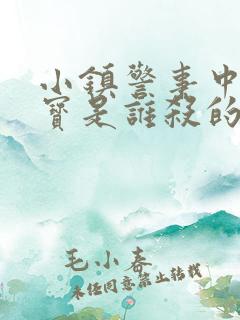 小鎮警事中
寶是誰殺的
毛小春
未經同意禁止轉載